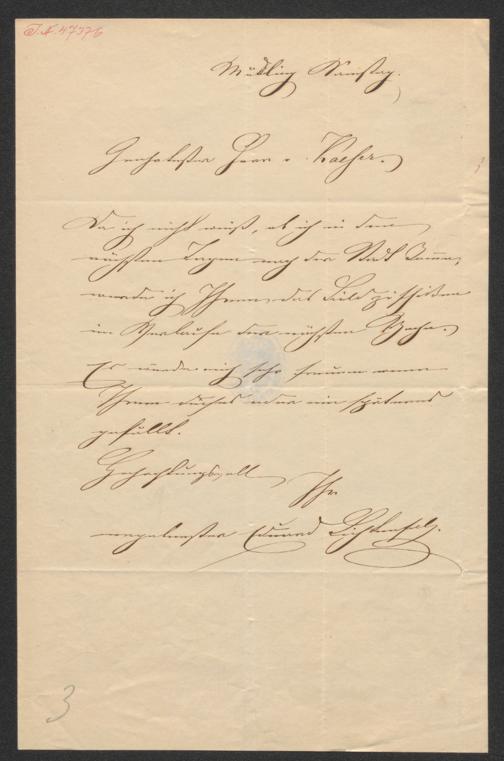 I.N. 47376
Mödling Samstag.
Geehrtester Herr v. Kaeser.
Da ich nicht weiß, ob ich in den
nächsten Tagen nach der Stadt komme,
werde ich Ihnen das Bild zuschicken
im Verlaufe der nächsten Woche.
Es würde mich sehr freuen wenn
Ihnen dieses oder ein späteres
gefällt.
Hochachtungsvoll
Ihr
ergebenster Eduard Lichtenfels.
3